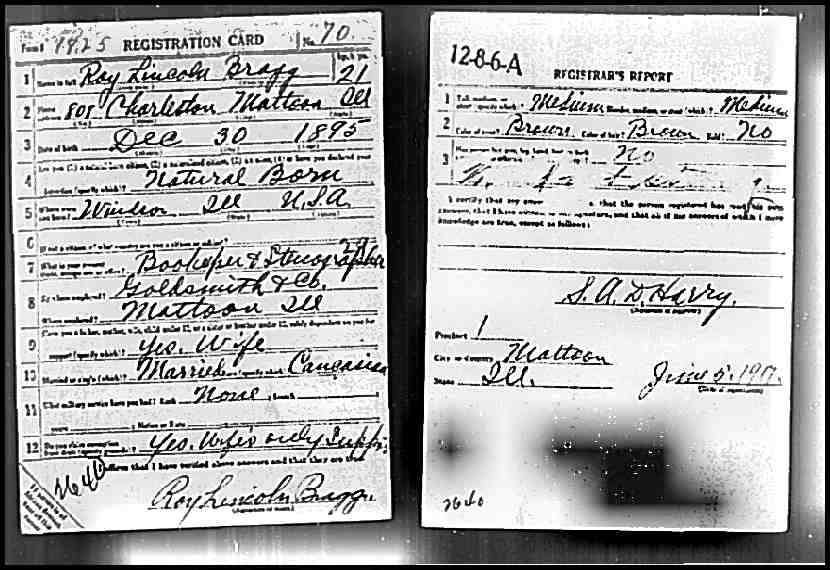 Form 1 7825 REGISTRATION CARD No. 70
Age, in yrs.
1 Name in full Roy Lincoln Bragg 21
2 Home address 805 Charleston Mattoon Ill
3 Date of birth Dec 30 1895
4 Natural Born
5 Where were you born? Windsor Ill U.S.A.
6 If not a citizen, of what country are you a citizen or subject?
7 What is your present Bookeeper & Stenographer
8 By whom employed? Goldsmith & Co.
Where employed? Mattoon Ill
9 Have you a father, mother, wife, child under 12, or a sister or brother under 12, solely dependent on you for
support (specify which)? Yes. Wife
10 Married or single (which)? Married (specify which) Caucasian
11 What military service have you had? Rank None ; branch
years ; Nation or State
12 Do you claim exemption Yes. Wife's only Support
I affirm that I have verified above answers and that they are true
2640
Roy Lincoln Bragg.
12-8-6-A
REGISTRAR'S REPORT
1 Tall, medium, or short (specify which)? Medium Slender, medium, or stout (which)? Medium
2 Color of eyes? Brown Color of hair? Brown Bald? No
3 Has person lost arm, leg, hand, No
I certify that my answers that the person registered has read his own
answers, that I have witnessed his signature, and that all of his answers of which I have
knowledge are true, except as follows:
S. A. D. Harry.
Precinct 1
City or County Mattoon
State Ill. June 5, 1917.
(Date of registration)
2640